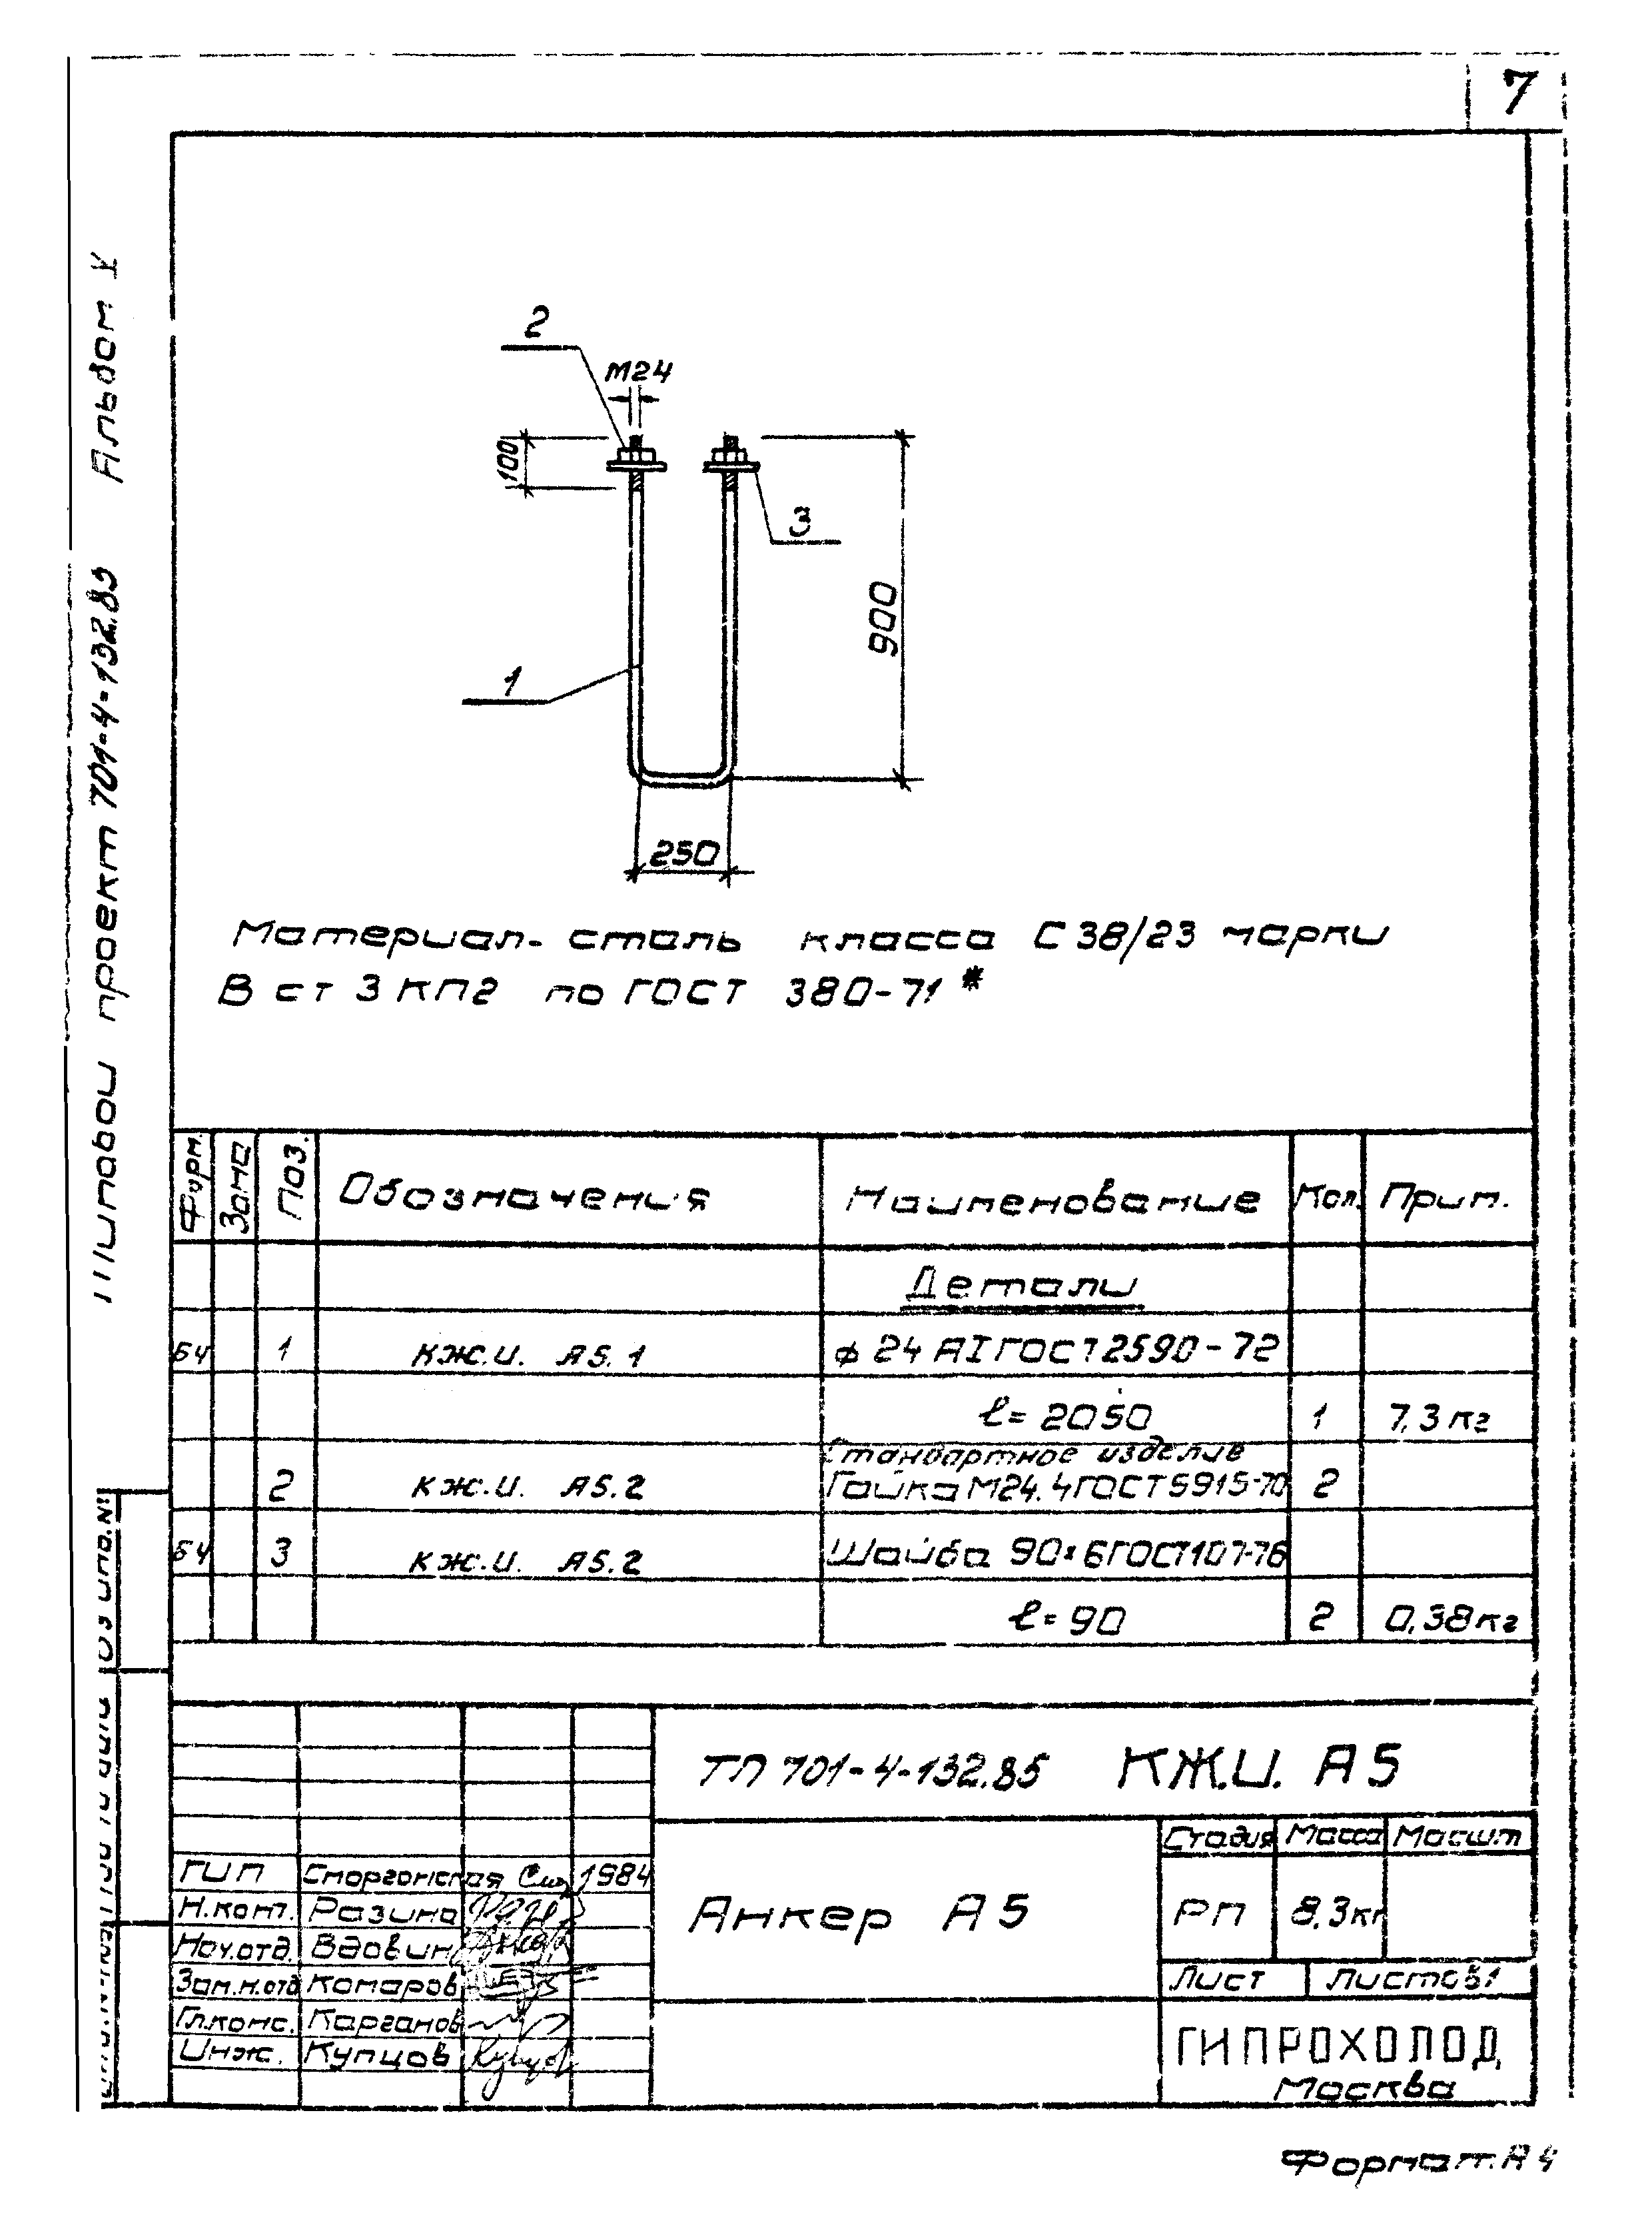 7
Альбом V
Типовой проект 701-4-132.85
2
М24
100
3
900
1
250
Материал- сталь класса С 38/23 марки
В ст 3 КП2 по ГОСТ 380-71*
Форм. Зона Поз. Обозначения Наименование Кол. Прим.
Детали
БЧ 1 КЖ.И. А5.1 ф 24 АI ГОСТ 2590-72
ℓ= 2050 1 7,3 кг
Стандартное изделие
2 КЖ.И. А5.2 Гайка М24.4 ГОСТ 5915-70 2
БЧ 3 КЖ.И. А5.2 Шайба 90×6 ГОСТ 107-76
ℓ=90 2 0,38кг
ТП 701-4-132.85 КЖ.И. А5
Стадия Масса Масшт
ГИП Сморгонская 1984
Н.конт. Разина
Анкер А5
РП 8,3кг
Нач.отд. Вдовин
Зам.н.отд Комаров
Лист Листов 1
Гл.конс. Карганов
Инж. Купцов
ГИПРОХОЛОД
Москва
Формат А4